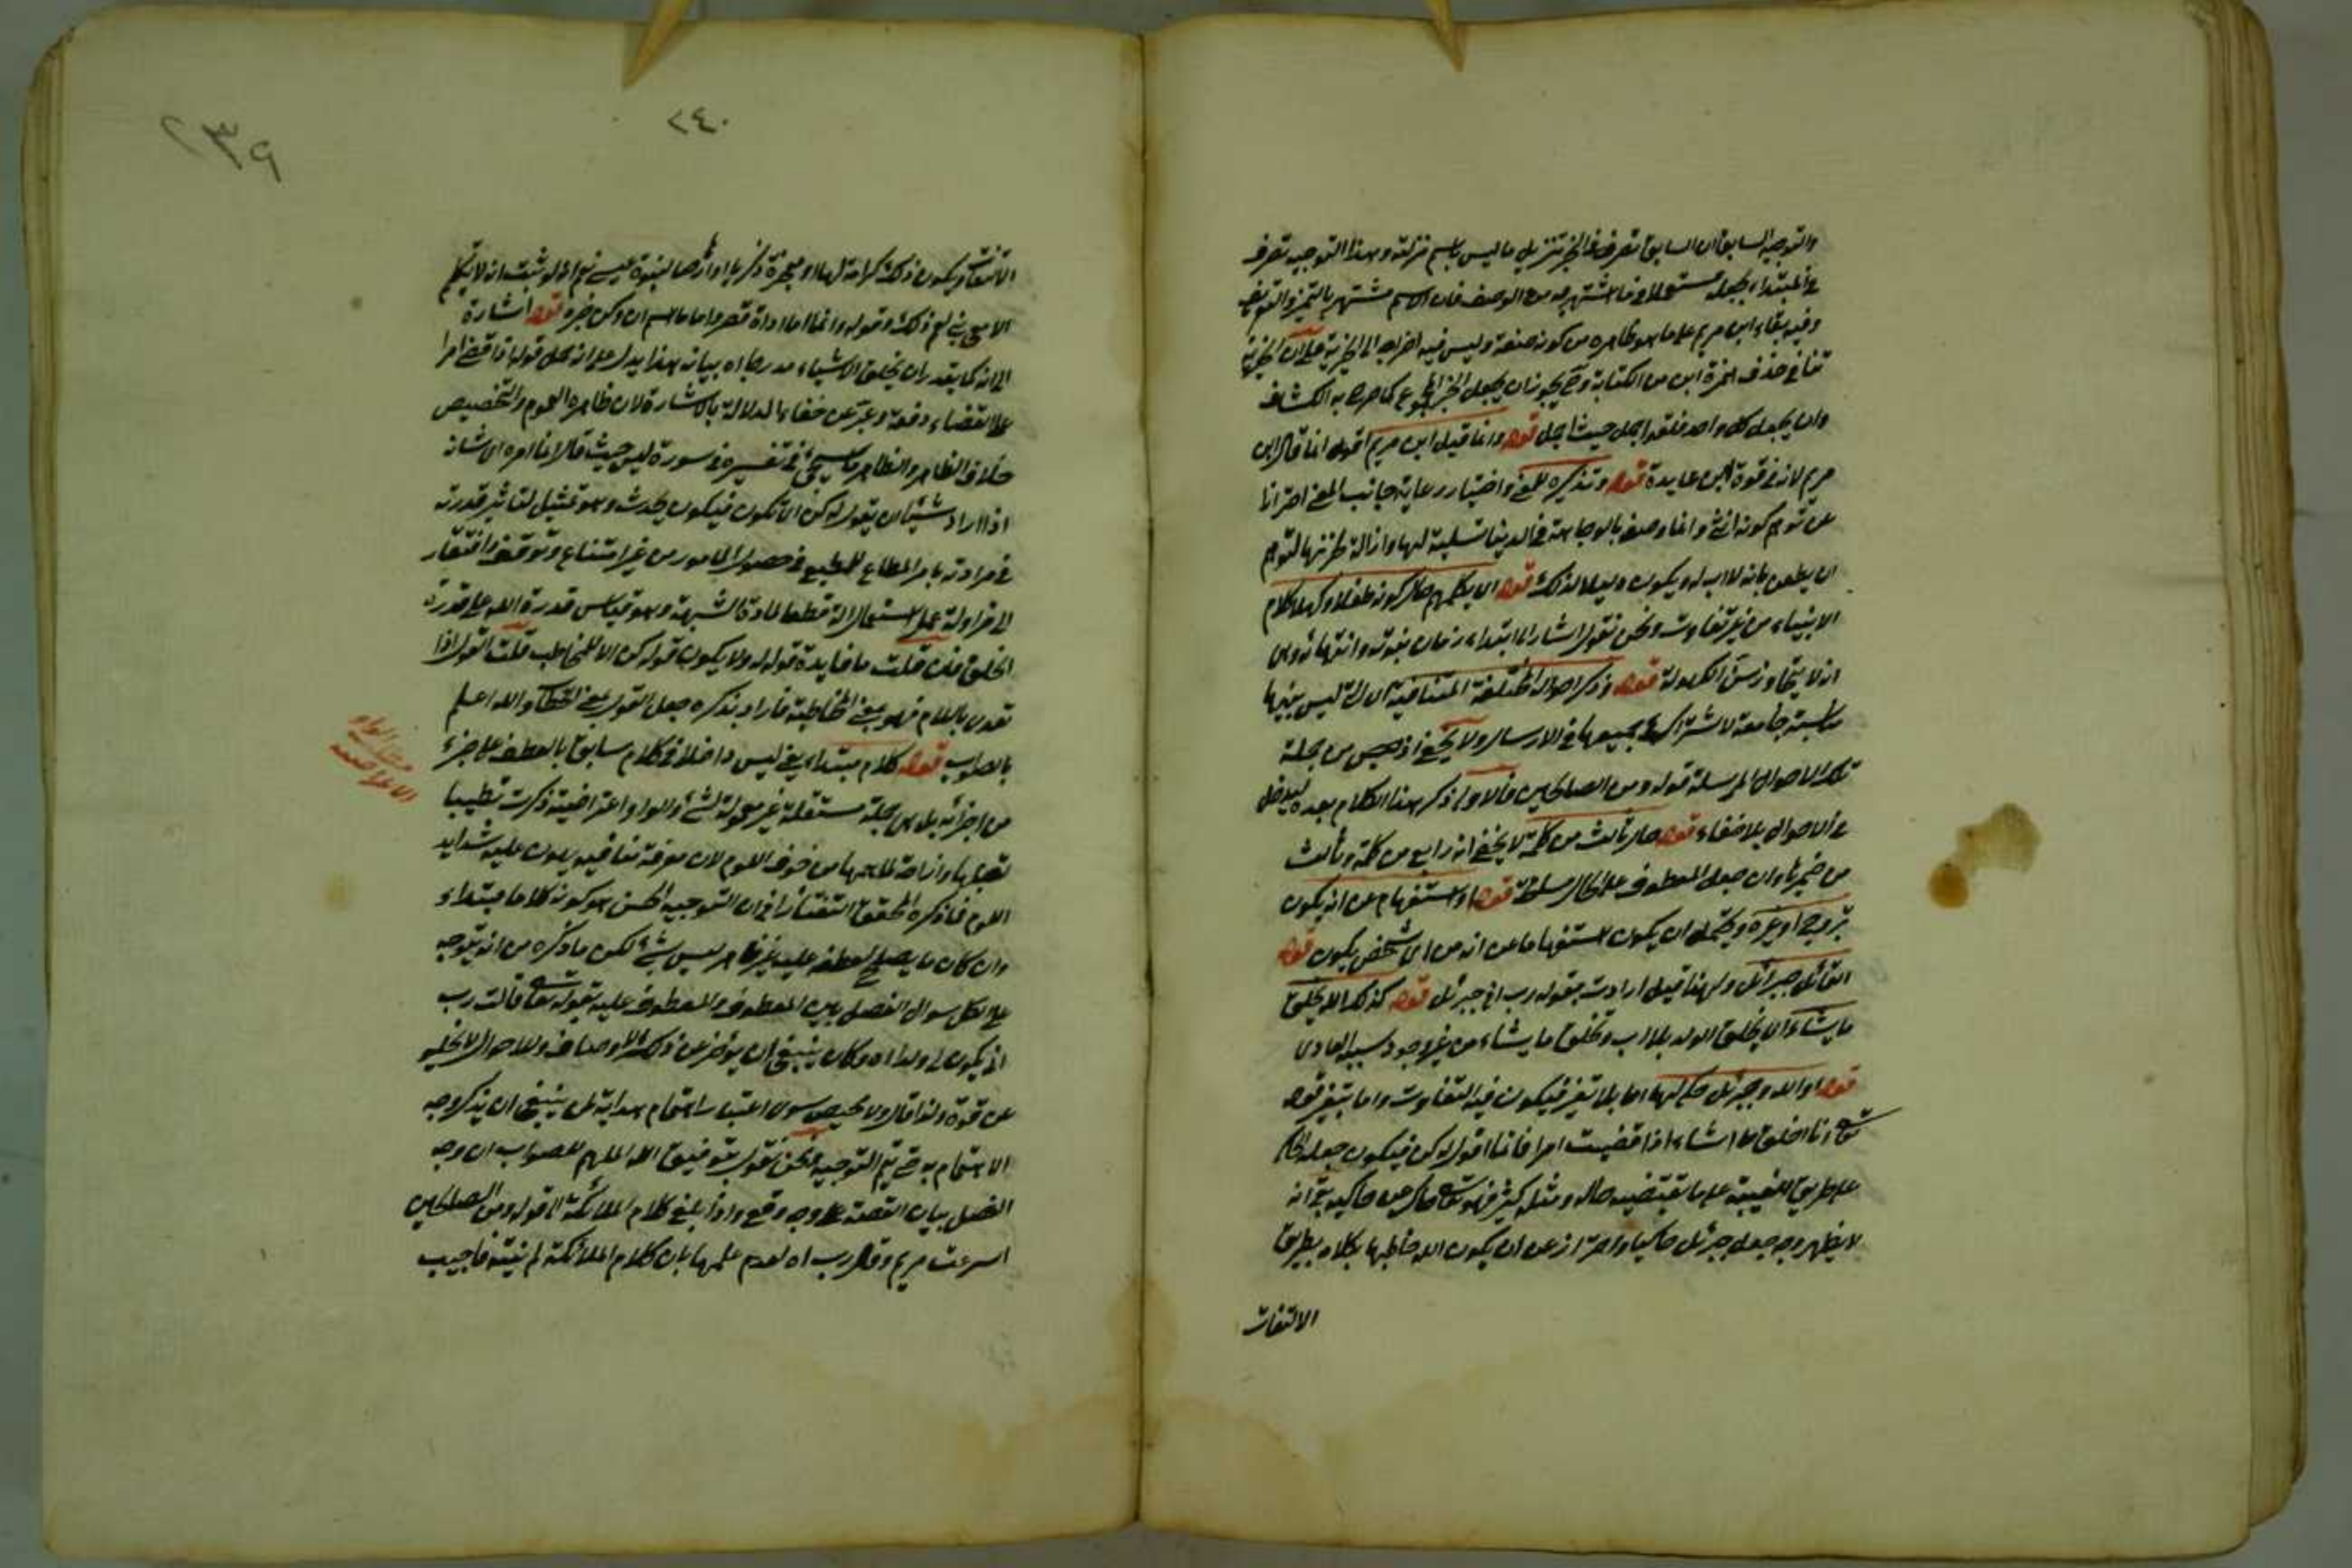 والتوجيه السابق ان السابق تصرف في الخبر تنزيل ما ليس باسم منزلته وهذا التوجيه تصرف
في المبتداء بجعله مستعملا فيما اشتهر به من الوصف فان الاسم مشتهر بالتميز والتعريف
وفيه بقاء ابن مريم على ما هو ظاهره من كونه صفة وليس فيه اخراجه الى الخبرية على ان الخبرية
تنافي حذف الهمزة ابن من الكتابة وح يجوز ان يجعل الخبر المجموع كما صرح به الكشاف
وان يجعل كل واحد فلقد اجمل حيث اجمل قوله وانما قيل ابن مريم اقول انما قال ابن
مريم لانه في قوة ابن عابدة قوله وتذكيره للمعنى واختيار رعاية جانب المعنى احترازا
عن توهم كونه انثى وانما وصف بالوجاهة في الدنيا تسلية لها وازالة لحزنها لتوهم
ان يطعن بانه لا اب له ويكون ذليلا لذلك قوله اي يكلمهم حال كونه طفلا وكهلا كلام
الانبياء من غير تفاوت ونحن نقول اشار الى ابتداء زمان نبوته وانتهائه وهي
انه لا يتجاوز سن الكهولة قوله وذكر احواله المختلفة المتنافية اي التي ليس بينها
مناسبة جامعة لاشتراك جميعها في الارسال ولا يخفى اذ ليس من جملة
تلك الاحوال المرسلة قوله ومن الصالحين فالاولى ذكر هذا الكلام بعده ليدخل
في الاحوال بلا خفاء قوله حال ثالث من كلمة لا يخفى انه رابع من كلمة وثالث
من ضميرها وان جعل المعطوف على الحال سلوط قوله او استفهام عن انه يكون
بتزوج او غيره ويحتمل ان يكون استفهاما عن انه من اي شخص يكون قوله
القائل جبرائيل ولهذا قيل ارادت بقولها رب اي جبرئيل قوله كذلك الله يخلق
ما يشاء اي الله يخلق الولد بلا اب ويخلق ما يشاء من غير وجود سببه العادي
قوله او الله وجبرئيل حكى لها اما بلا تغير فيكون فيه التفاوت واما بتغير قوله
تعالى انا اخلق ما اشاء اذا قضيت امرا فانما اقول له كن فيكون جعله الحاكي
على طريق الغيبة على ما يقتضيه حاله ومثله كثير فهو تعالى حاك عن حاكيه بقي انه
لا يظهر وجه جعل جبرئيل حاكيا واحترز عن ان يكون الله خاطبها بكلام بطريق
الالتفات
٢٤٠
٢٣٩
الالتفات ويكون ذلك كرامة لها او معجزة زكريا او ارهاصا لنبوة عيسى نعم لو ثبت انه لا يتكلم
الا مع نبي لم ذلك وقوله وانما اما اداة قصر واما ما اسم ان وكن خبره قوله اشارة
الى انه كما يقدر ان يخلق الاشياء مدرجا اه بيانه هذا يدل على انه حمل قوله اذا قضى امرا
على القضاء دفعة وعبر عن خفاء الدلالة بالاشارة لان ظاهره العموم والتخصيص
خلاف الظاهر والظاهر ما سيجئ في تفسيره في سورة يس حيث قال انما امره اي شانه
اذا اراد شيئا ان يقول له كن اي تكون فيكون يحدث وهو تمثيل لتاثير قدرته
في مراده بامر المطاع للمطيع في حصول المامور من غير امتناع وتوقف وافتقار
الى مزاولة عمل واستعمال الة قطعا لمادة الشبهة وهو قياس قدرة الله على قدرة
الخلق فان قلت ما فايدة قوله له ولا يكون قوله كن الا للمخاطب قلت القول اذا
تعدى باللام فهو بمعنى المخاطبة فاراد بذكره جعل القول بمعنى الخطاب والله اعلم
بالصواب قوله كلام مبتداء يعني ليس داخلا في كلام سابق بالعطف على جزء
من اجزائه بل هي جملة مستقلة غير معمولة لشئ والواو اعتراضية ذكرت تطييبا
لقلبها وازاحة لما همها من خوف اللوم لان معرفة منافيه يهون عليه شدايد
اللوم فما ذكره المحقق التفتازاني ان التوجيه الحسن هو كونه كلاما مبتداء
وان كان ما يصلح لعطفه عليه غير ظاهر ليس بشئ لكن ما ذكره من انه يتوجه
على الكل سوال الفصل بين المعطوف والمعطوف عليه بقوله تعالى قالت رب
انى يكون لي ولد اه وكان ينبغي ان يؤخر عن ذلك الاوصاف والاحوال لا يخلو
عن قوة ولذا قال ولا محيص سوى اعتبار اهتمام بهداية لمن ينبغي ان يذكر وجه
الاهتمام به حتى يتم التوجيه ونحن نقول بتوفيق الله الملهم للصواب ان وجه
الفصل بيان القصة على وجه وقع واذا بلغ كلام الملائكة الى قوله ومن الصالحين
اسرعت مريم وقال رب اه لعدم علمها بان كلام الملائكة لم ينته فاجيب